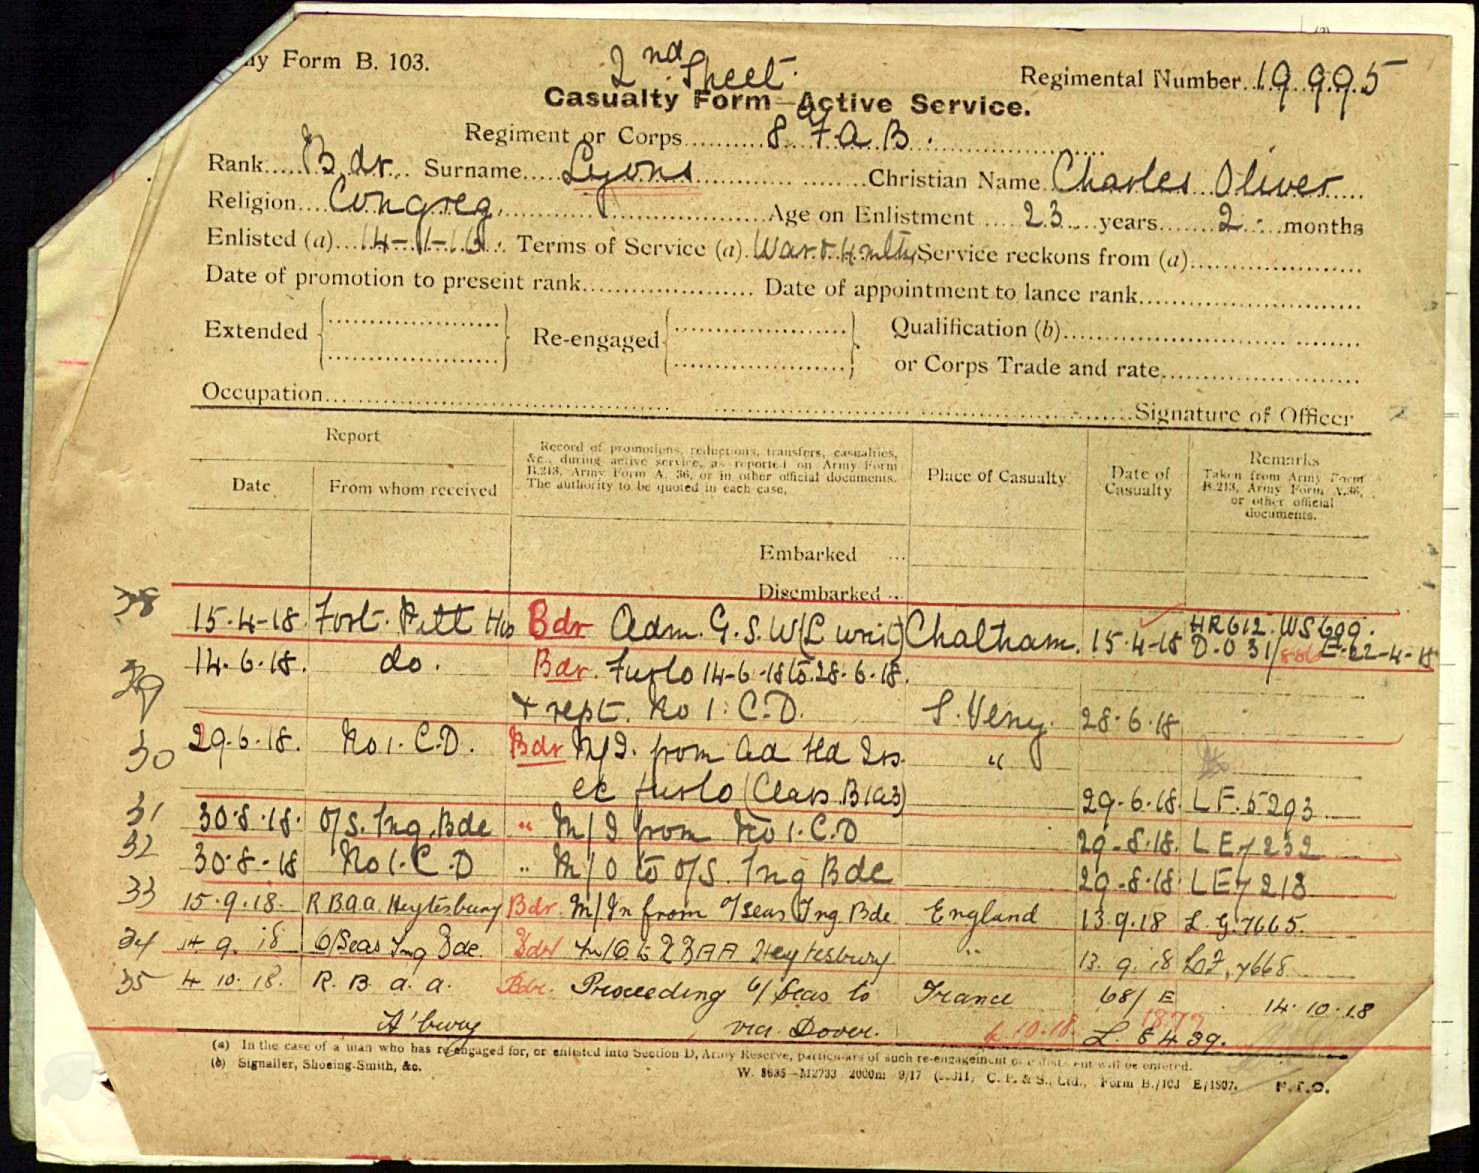 my Form B. 103.
2nd Sheet.
Regimental Number 19995
Casualty Form—Active Service.
Regiment or Corps 8 F.A.B.
Rank Bdr. Surname Lyons Christian Name Charles Oliver
Religion Congreg. Age on Enlistment 23 years 2 months
Enlisted (a) 14-1-16. Terms of Service (a) War & 4 mths Service reckons from (a)
Date of promotion to present rank Date of appointment to lance rank
Extended Re-engaged Qualification (b)
or Corps Trade and rate
Occupation Signature of Officer
Report
Date From whom received
Record of promotions, reductions, transfers, casualties,
&c., during active service, as reported on Army Form
B.213, Army Form A. 36, or in other official documents.
The authority to be quoted in each case.
Place of Casualty
Date of
Casualty
Remarks
Taken from Army Form
B.213, Army Form A.36,
or other official
documents.
Embarked ...
Disembarked ..
28 15.4-18. Fort. Pitt Hos Bdr Adm. G.S.W (L wrist) Chatham. 15.4-18 HR612. WS699.
D.O 31/ E.22-4-18
29 14.6.18. do. Bdr. Furlo 14-6-18 to 28.6.18.
+ rept. No 1. C.D. S. Veny. 28.6.18
30 29.6.18. No 1. C.D. Bdr M/I. from Ad Hd Qrs. "
ex furlo (Class B1a3) 29-6.18. LF.5293
31 30.8.18. O/S. Tng. Bde " M/I from No 1. C.D 29-8.18. LE7232
32 30.8-18 No 1. C.D " M/O to O/S. Tng Bde 29-8.18 LE7218
33 15.9.18- RBAA. Heytesbury Bdr. M/In from O/seas Tng. Bde England 13.9.18 L.G.7665.
34 14.9.18 O/Seas Tng Bde. Bdr M/O to RBAA Heytesbury " 13.9.18 LG.7668
35 4.10.18. R.B.A.A. Bdr. Proceeding O/Seas to France 68/E 14.10.18
H'bury via Dover. 4.10.18. 1877 L.8439.
(a) In the case of a man who has re-engaged for, or enlisted into Section D, Army Reserve, particulars of such re-engagement or enlistment will be entered.
(b) Signaller, Shoeing-Smith, &c.
W. 8635—M2733 2000m 9/17 C. P. & S., Ltd., Form B./103 E/1807. P.T.O.